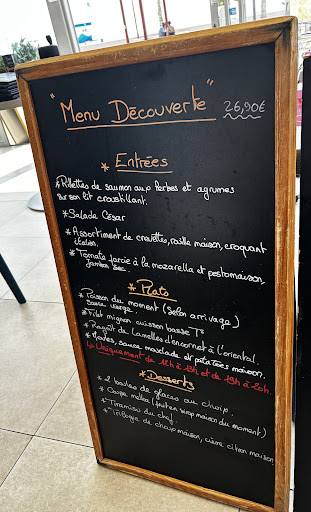 "Menu Découverte" 26,90€
* Entrées
* Rillettes de saumon aux herbes et agrumes
sur son lit croustillant.
* Salade César
* Assortiment de crevettes, rouille maison, croquant
italien.
* Tomate farcie à la mozarella et pesto maison,
jambon sec.
* Plats
* Poisson du moment (selon arrivage)
sauce vierge.
* Filet mignon cuisson basse T°
* Ragoût de lamelles d'encornet à l'oriental.
* Moules, sauce mouclade et potatoes maison.
Uniquement de 12h à 13h et de 19h à 20h.
* Desserts
* 2 boules de glaces au choix.
* Coupe melba (fruit en sirop maison du moment)
* Tiramisu du chef.
* Trilogie de choux maison, crème citron maison